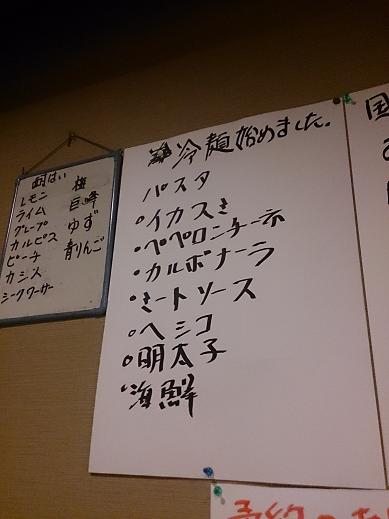 酎はい
レモン
ライム
グレープ
カルピス
ピーチ
カシス
シークワーサー
梅
巨峰
ゆず
青りんご
冷麺始めました。
パスタ
・イカスミ
・ペペロンチーネ
・カルボナーラ
・ミートソース
・ヘシコ
・明太子
・海鮮
国